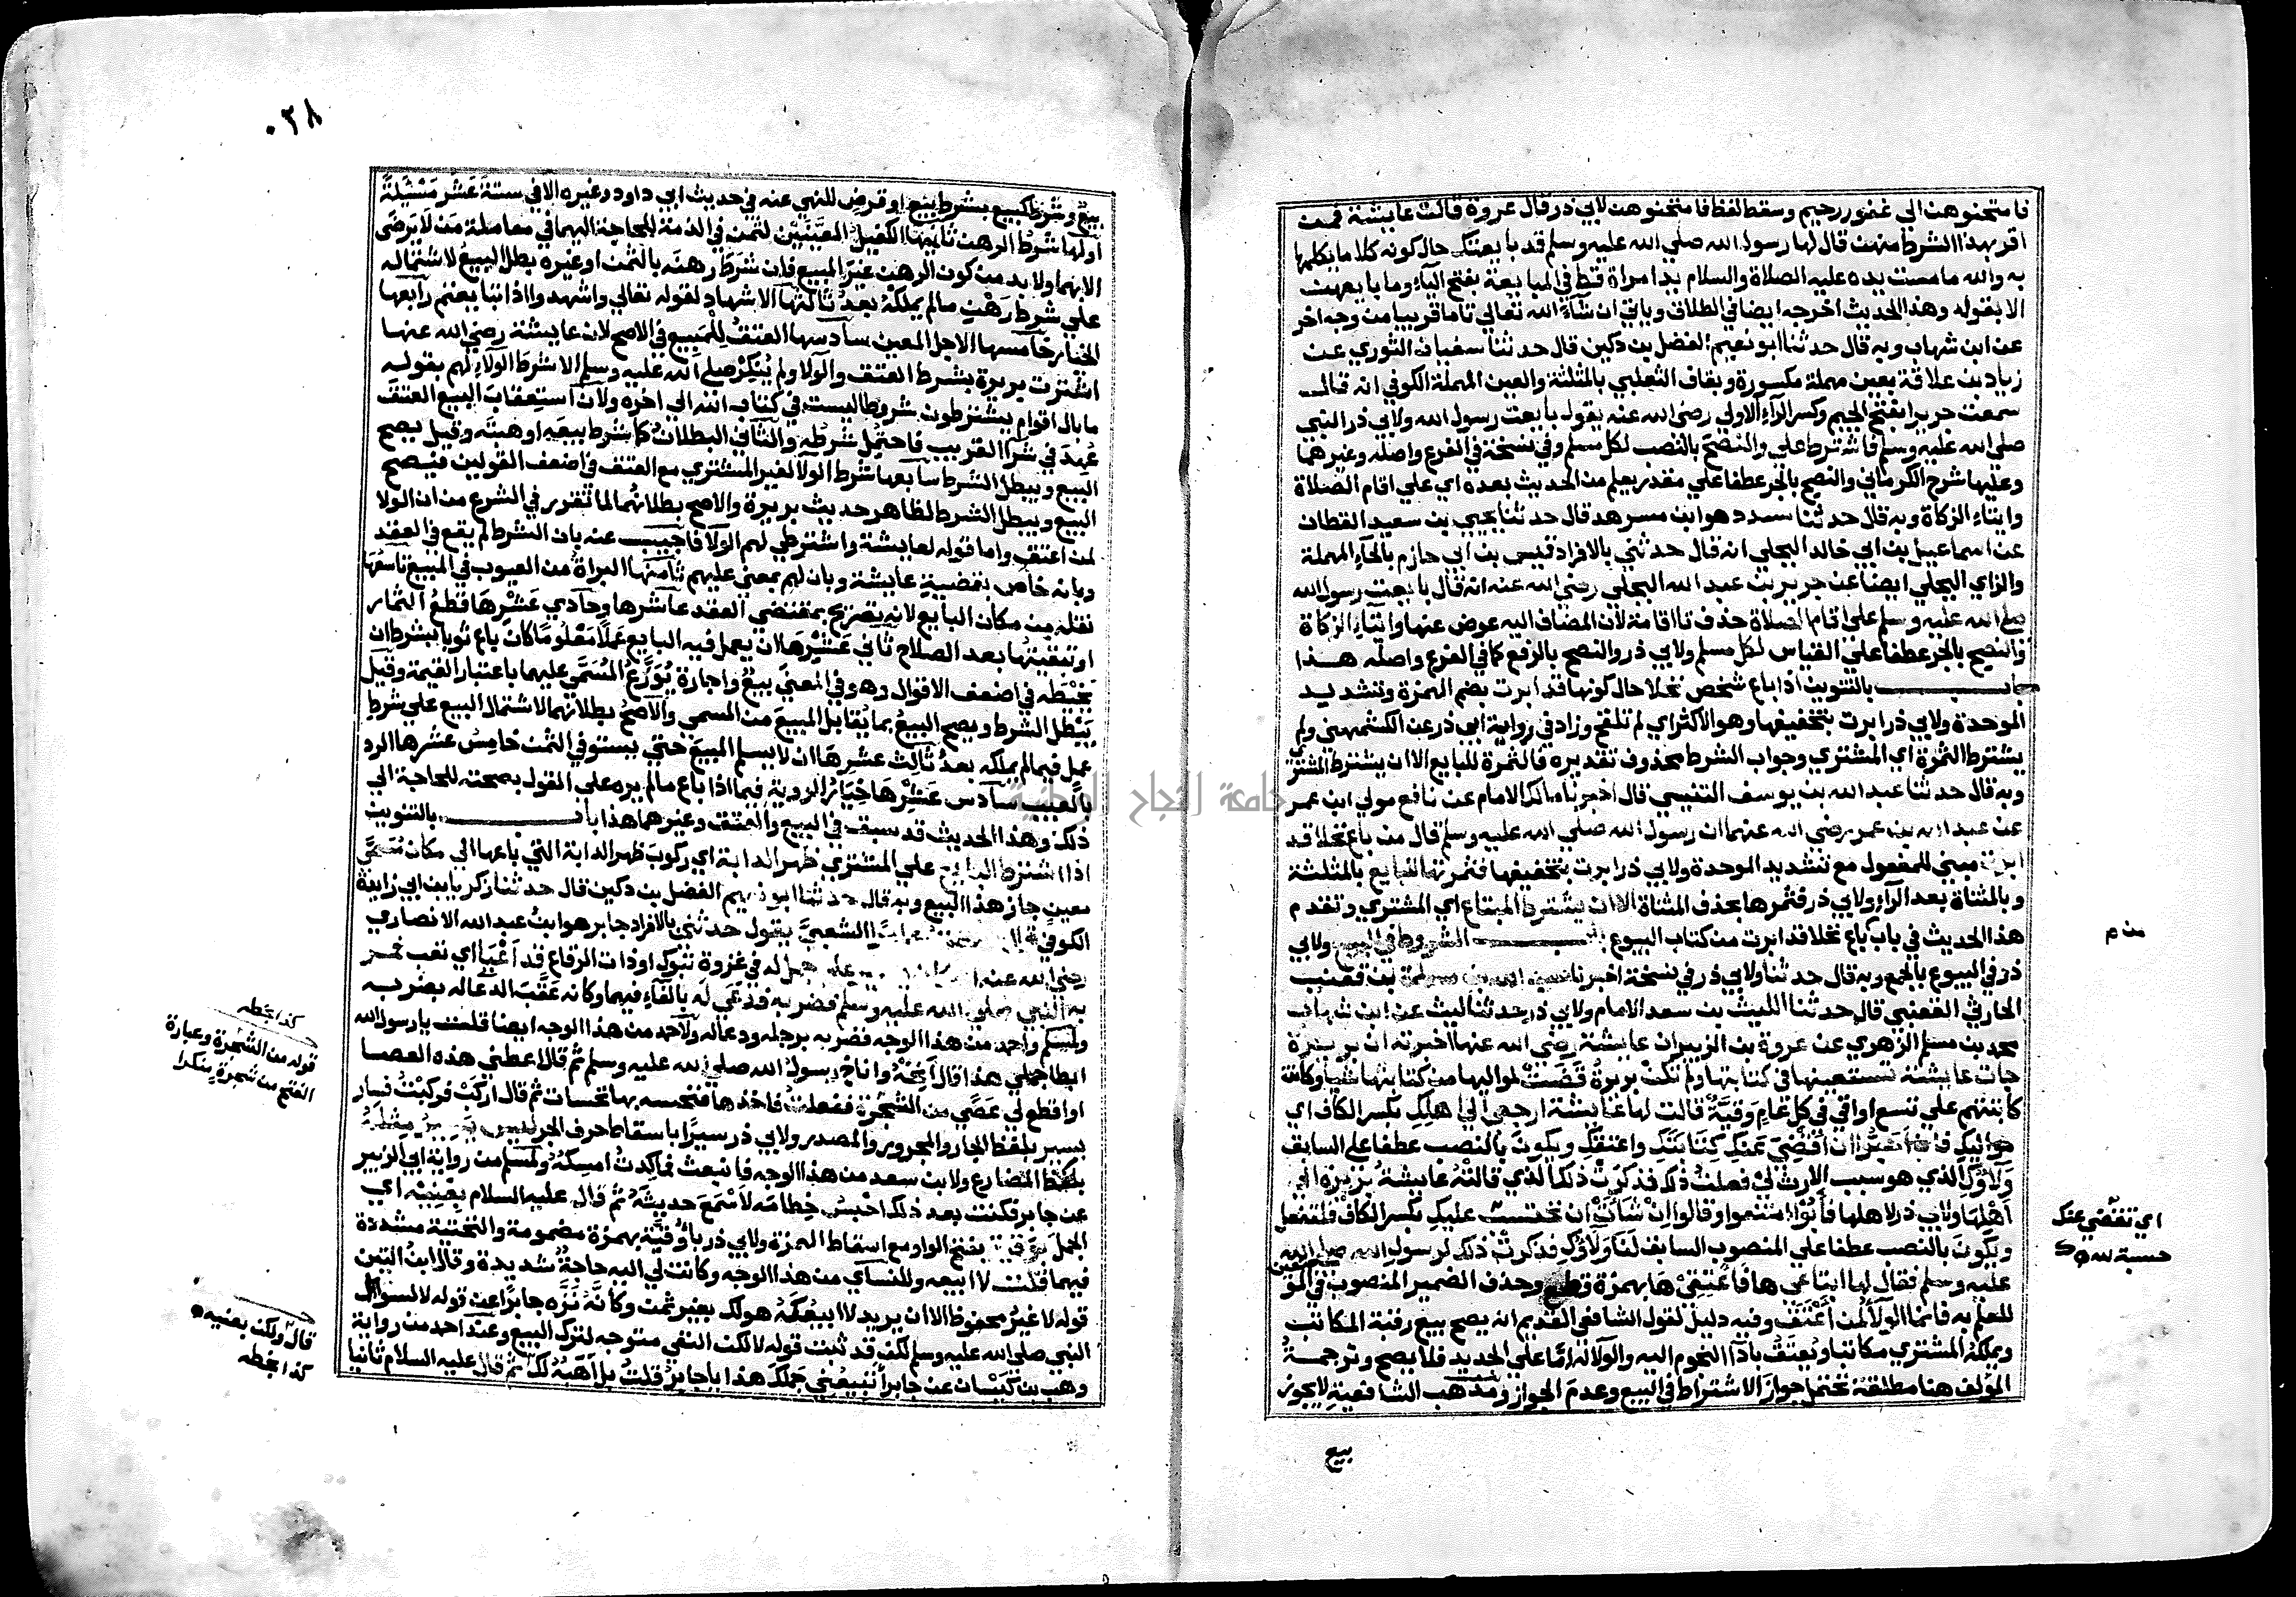 فامتحنوهن الي غفور رحيم وسقط لفظ فامتحنوهن لابي ذر قال عروة قالت عايشة فمن
اقر بهذا الشرط منهن قال لها رسول الله صلي الله عليه وسلم قد بايعتك حال كونه كلاما يكلمها
به والله ما مست يده عليه الصلاة والسلام يد امراة قط في المبايعة بفتح الياء وما بايعهن
الا بقوله وهذا الحديث اخرجه ايضا في الطلاق وياتي ان شاء الله تعالي تاما قريبا من وجه اخر
عن ابن شهاب وبه قال حدثنا ابو نعيم الفضل بن دكين قال حدثنا سفيان الثوري عن
زياد بن علاقة بعين مهملة مكسورة وبقاف الثعلبي بالمثلثة والعين المهملة الكوفي انه قال
سمعت جريرا بفتح الجيم وكسر الراء الاولي رضي الله عنه يقول بايعت رسول الله ولابي ذر النبي
صلي الله عليه وسلم فاشترط علي والنصح بالنصب لكل مسلم وفي نسخة في الفرع واصله وغيرهما
وعليها شرح الكرماني والنصح بالجر عطفا علي مقدر يعلم من الحديث بعده اي علي اقام الصلاة
وايتاء الزكاة وبه قال حدثنا مسدد هو ابن مسرهد قال حدثنا يحيي بن سعيد القطان
عن اسماعيل بن ابي خالد البجلي انه قال حدثني بالافراد قيس بن ابي حازم بالحاء المهملة
والزاي البجلي ايضا عن جرير بن عبد الله البجلي رضي الله عنه انه قال بايعت رسول الله
صلي الله عليه وسلم علي اقام الصلاة حذف تا اقامة لان المضاف اليه عوض عنها وايتاء الزكاة
والنصح بالجر عطفا علي القياس لكل مسلم ولابي ذر والنصح بالرفع كما في الفرع واصله هذا
باب بالتنوين اذا باع شخص نخلا حال كونها قد ابرت بضم الهمزة وتشديد
الموحدة ولابي ذر ابرت بتخفيفها وهو الاكثر اي لم تلقح وزاد في رواية ابي ذر عن الكشميهني ولم
يشترط الثمرة اي المشتري وجواب الشرط محذوف تقديره فالثمرة للبايع الا ان يشترط المشتري
وبه قال حدثنا عبد الله بن يوسف التنيسي قال اخبرنا مالك الامام عن نافع مولي ابن عمر
عن عبد الله بن عمر رضي الله عنهما ان رسول الله صلي الله عليه وسلم قال من باع نخلا قد
ابرت مبني للمفعول مع تشديد الموحدة ولابي ذر ابرت بتخفيفها فثمرتها للبايع بالمثلثة
وبالمثناة بعد الراء ولابي ذر فثمرها بحذف المثناة الا ان يشترط المبتاع اي المشتري وتقدم
هذا الحديث في باب باع نخلا قد ابرت من كتاب البيوع باب الشروط في البيع ولابي
ذر في البيوع بالجمع وبه قال حدثنا ولابي ذر في نسخة اخبرنا عبد الله بن مسلمة بن قعنب
الحارثي القعنبي قال حدثنا الليث بن سعد الامام ولابي ذر حدثنا ليث عن ابن شهاب
محمد بن مسلم الزهري عن عروة بن الزبير ان عايشة رضي الله عنها اخبرته ان بريرة
جات عايشة تستعينها في كتابتها ولم تكن بريرة قضت لمواليها من كتابتها شيا وكانت
كاتبتهم علي تسع اواقي في كل عام وقية قالت لها عايشة ارجعي الي اهلك بكسر الكاف اي
مواليك فان احبوا ان اقضي عنك كتابتك واعتقك ويكون بالنصب عطفا علي السابق
ولاؤك الذي هو سبب الارث لي فعلت ذلك فذكرت ذلك الذي قالته عايشة بريرة الي
اهلها ولابي ذر لاهلها فابوا امتنعوا وقالوا ان شات ان تحتسب عليك بكسر الكاف فلتفعل
ويكون بالنصب عطفا علي المنصوب السابق لنا ولاؤك فذكرت ذلك لرسول الله صلي الله
عليه وسلم فقال لها ابتاعي ها فاعتقي ها بهمزة قطع وحذف الضمير المنصوب في الموضعين
للعلم به فانما الولا لمن اعتق وفيه دليل لقول الشافعي القديم انه يصح بيع رقبة المكاتب
ويملكه المشتري مكاتبا ويعتق باداء النجوم اليه والولا له اما علي الجديد فلا يصح وترجمة
المؤلف هنا مطلقة تحتمل جواز الاشتراط في البيع وعدم الجواز ومذهب الشافعية لا يجوز
بيع
من م
اي تقضي عنك
حسبة لله
٠٣٨
بيع وشرط كبيع بشرط بيع او قرض للنهي عنه في حديث ابي داود وغيره الا في ستة عشر مسئلة
اولها شرط الرهن ثانيها الكفيل المعينين لثمن في الذمة للحاجة اليهما في معاملة من لا يرضي
الا بهما ولا بد من كون الرهن غير المبيع فان شرط رهنه بالثمن او غيره بطل البيع لاشتماله
علي شرط رهن ما لم يملكه بعد ثالثها الاشهاد لقوله تعالي واشهدوا اذا تبايعتم رابعها
الخيار خامسها الاجل المعين سادسها العتق للمبيع في الاصح لان عايشة رضي الله عنها
اشترت بريرة بشرط العتق والولا ولم ينكر صلي الله عليه وسلم الا شرط الولاء لهم بقوله
ما بال اقوام يشترطون شروطا ليست في كتاب الله الي اخره ولان استعقاب البيع العتق
عهد في شرا القريب فاحتمل شرطه والثاني البطلان كما شرط بيعه او هبته وقيل يصح
البيع ويبطل الشرط سابعها شرط الولا لغير المشتري مع العتق في اضعف القولين فيصح
البيع ويبطل الشرط لظاهر حديث بريرة والاصح بطلانهما لما تقرر في الشرع من ان الولا
لمن اعتق واما قوله لعايشة واشترطي لهم الولا فاجيب عنه بان الشرط لم يقع في العقد
وبانه خاص بقضية عايشة وبان لهم بمعني عليهم ثامنها البراة من العيوب في المبيع تاسعها
نقله من مكان البايع لانه تصريح بمقتضي العقد عاشرها وحادي عشرها قطع الثمار
او تبقيتها بعد الصلاح ثاني عشرها ان يعمل فيه البايع عملا معلوما كان باع ثوبا بشرط ان
يخيطه في اضعف الاقوال وهو في المعني بيع واجارة يوزع المسمي عليهما باعتبار القيمة وقيل
يبطل الشرط ويصح البيع بما يقابل المبيع من المسمي والاصح بطلانهما لاشتمال البيع علي شرط
عمل فيما لم يملكه بعد ثالث عشرها ان لا يسلم المبيع حتي يستوفي الثمن خامس عشرها الرد
بالعيب سادس عشرها خيار الروية فيما اذا باع ما لم يره علي القول بصحته للحاجة الي
ذلك وهذا الحديث قد سبق في البيع والعتق وغيرهما هذا باب بالتنوين
اذا اشترط البايع علي المشتري ظهر الدابة اي ركوب ظهر الدابة التي باعها الي مكان مسمي
معين جاز هذا البيع وبه قال حدثنا ابو نعيم الفضل بن دكين قال حدثنا زكريا بن ابي زايدة
الكوفي قال سمعت عامرا الشعبي يقول حدثني بالافراد جابر هو ابن عبد الله الانصاري
رضي الله عنه علي جمل له في غزوة تبوك او ذات الرقاع قد اعيا اي تعب فمر
به النبي صلي الله عليه وسلم فضربه فدعي له بالفاء فيهما وكانه عقب الدعا له بضربه
ولمسلم واحمد من هذا الوجه فضربه برجله ودعا له ولاحمد من هذا الوجه ايضا قلت يا رسول الله
ابطا جملي هذا قال انخه واناخ رسول الله صلي الله عليه وسلم ثم قال اعطني هذه العصا
او اقطع لي عصي من الشجرة ففعلت فاخذها فنخسه بها نخسات ثم قال اركب فركبت فسار
بسير بلفظ الجار والمجرور والمصدر ولابي ذر سيرا باسقاط حرف الجر ليس يسير مثله
بلفظ المضارع ولابن سعد من هذا الوجه فانبعث فما كدت امسكه ولمسلم من رواية ابي الزبير
عن جابر فكنت بعد ذلك احبس خطامه لاسمع حديثه ثم قال عليه السلام بعنيه اي
الجمل بوقية بفتح الواو مع اسقاط الهمزة ولابي ذر باوقية بهمزة مضمومة والتحتية مشددة
فيهما قلت لا ابيعه وللنساي من هذا الوجه وكانت لي اليه حاجة شديدة وقال ابن التين
قوله لا غير محفوظ الا ان يريد لا ابيعكه هو لك بغير ثمن وكانه نزه جابرا عن قوله لا لسوال
النبي صلي الله عليه وسلم لكن قد ثبت قوله لا لكن النفي متوجه لترك البيع وعند احمد من رواية
وهب بن كيسان عن جابر اتبيعني جملك هذا يا جابر قلت بل اهبه لك ثم قال عليه السلام ثانيا
كذا بخطه
قوله من الشجرة وعبارة
الفتح من شجرة منكرا
قال ولكن بعنيه
كذا بخطه
جامعة النجاح الوطنية